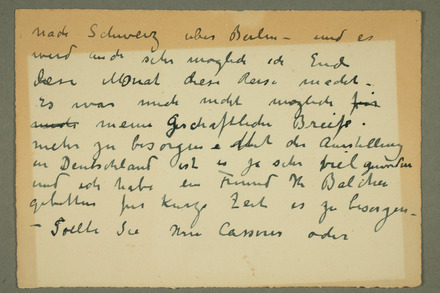 nach Schweiz über Berlin – und es
wird auch sehr möglich ich Ende
diese Monat diese Reise macht –
Es war mich nicht möglich für
meine Geschäftliche Briefe
mehr zu besorgen mit der Ausstellung
in Deutschland ist es ja sehr viel geworden
und ich habe ein Freund Hr
gebetten für kurze Zeit es zu besorgen –
– Sollte Sie Hrn Cassirer oder